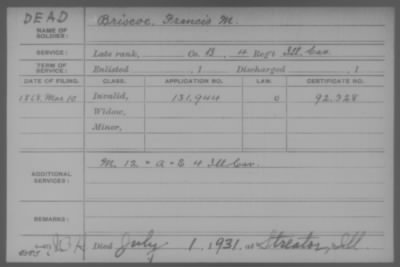 DEAD
NAME OF SOLDIER: Briscoe, Francis M.
SERVICE: Late rank, Co. B, 4 Reg't Ill. Cav.
TERM OF SERVICE: Enlisted , 1 Discharged , 1
DATE OF FILING. CLASS. APPLICATION NO. LAW. CERTIFICATE NO.
1868 Mar 10 Invalid, 131,944 0 92,328
Widow,
Minor,
ADDITIONAL SERVICES: M. 12 - a - & 4 Ill Cav.
REMARKS:
Died July 1, 1931, at Streator, Ill.